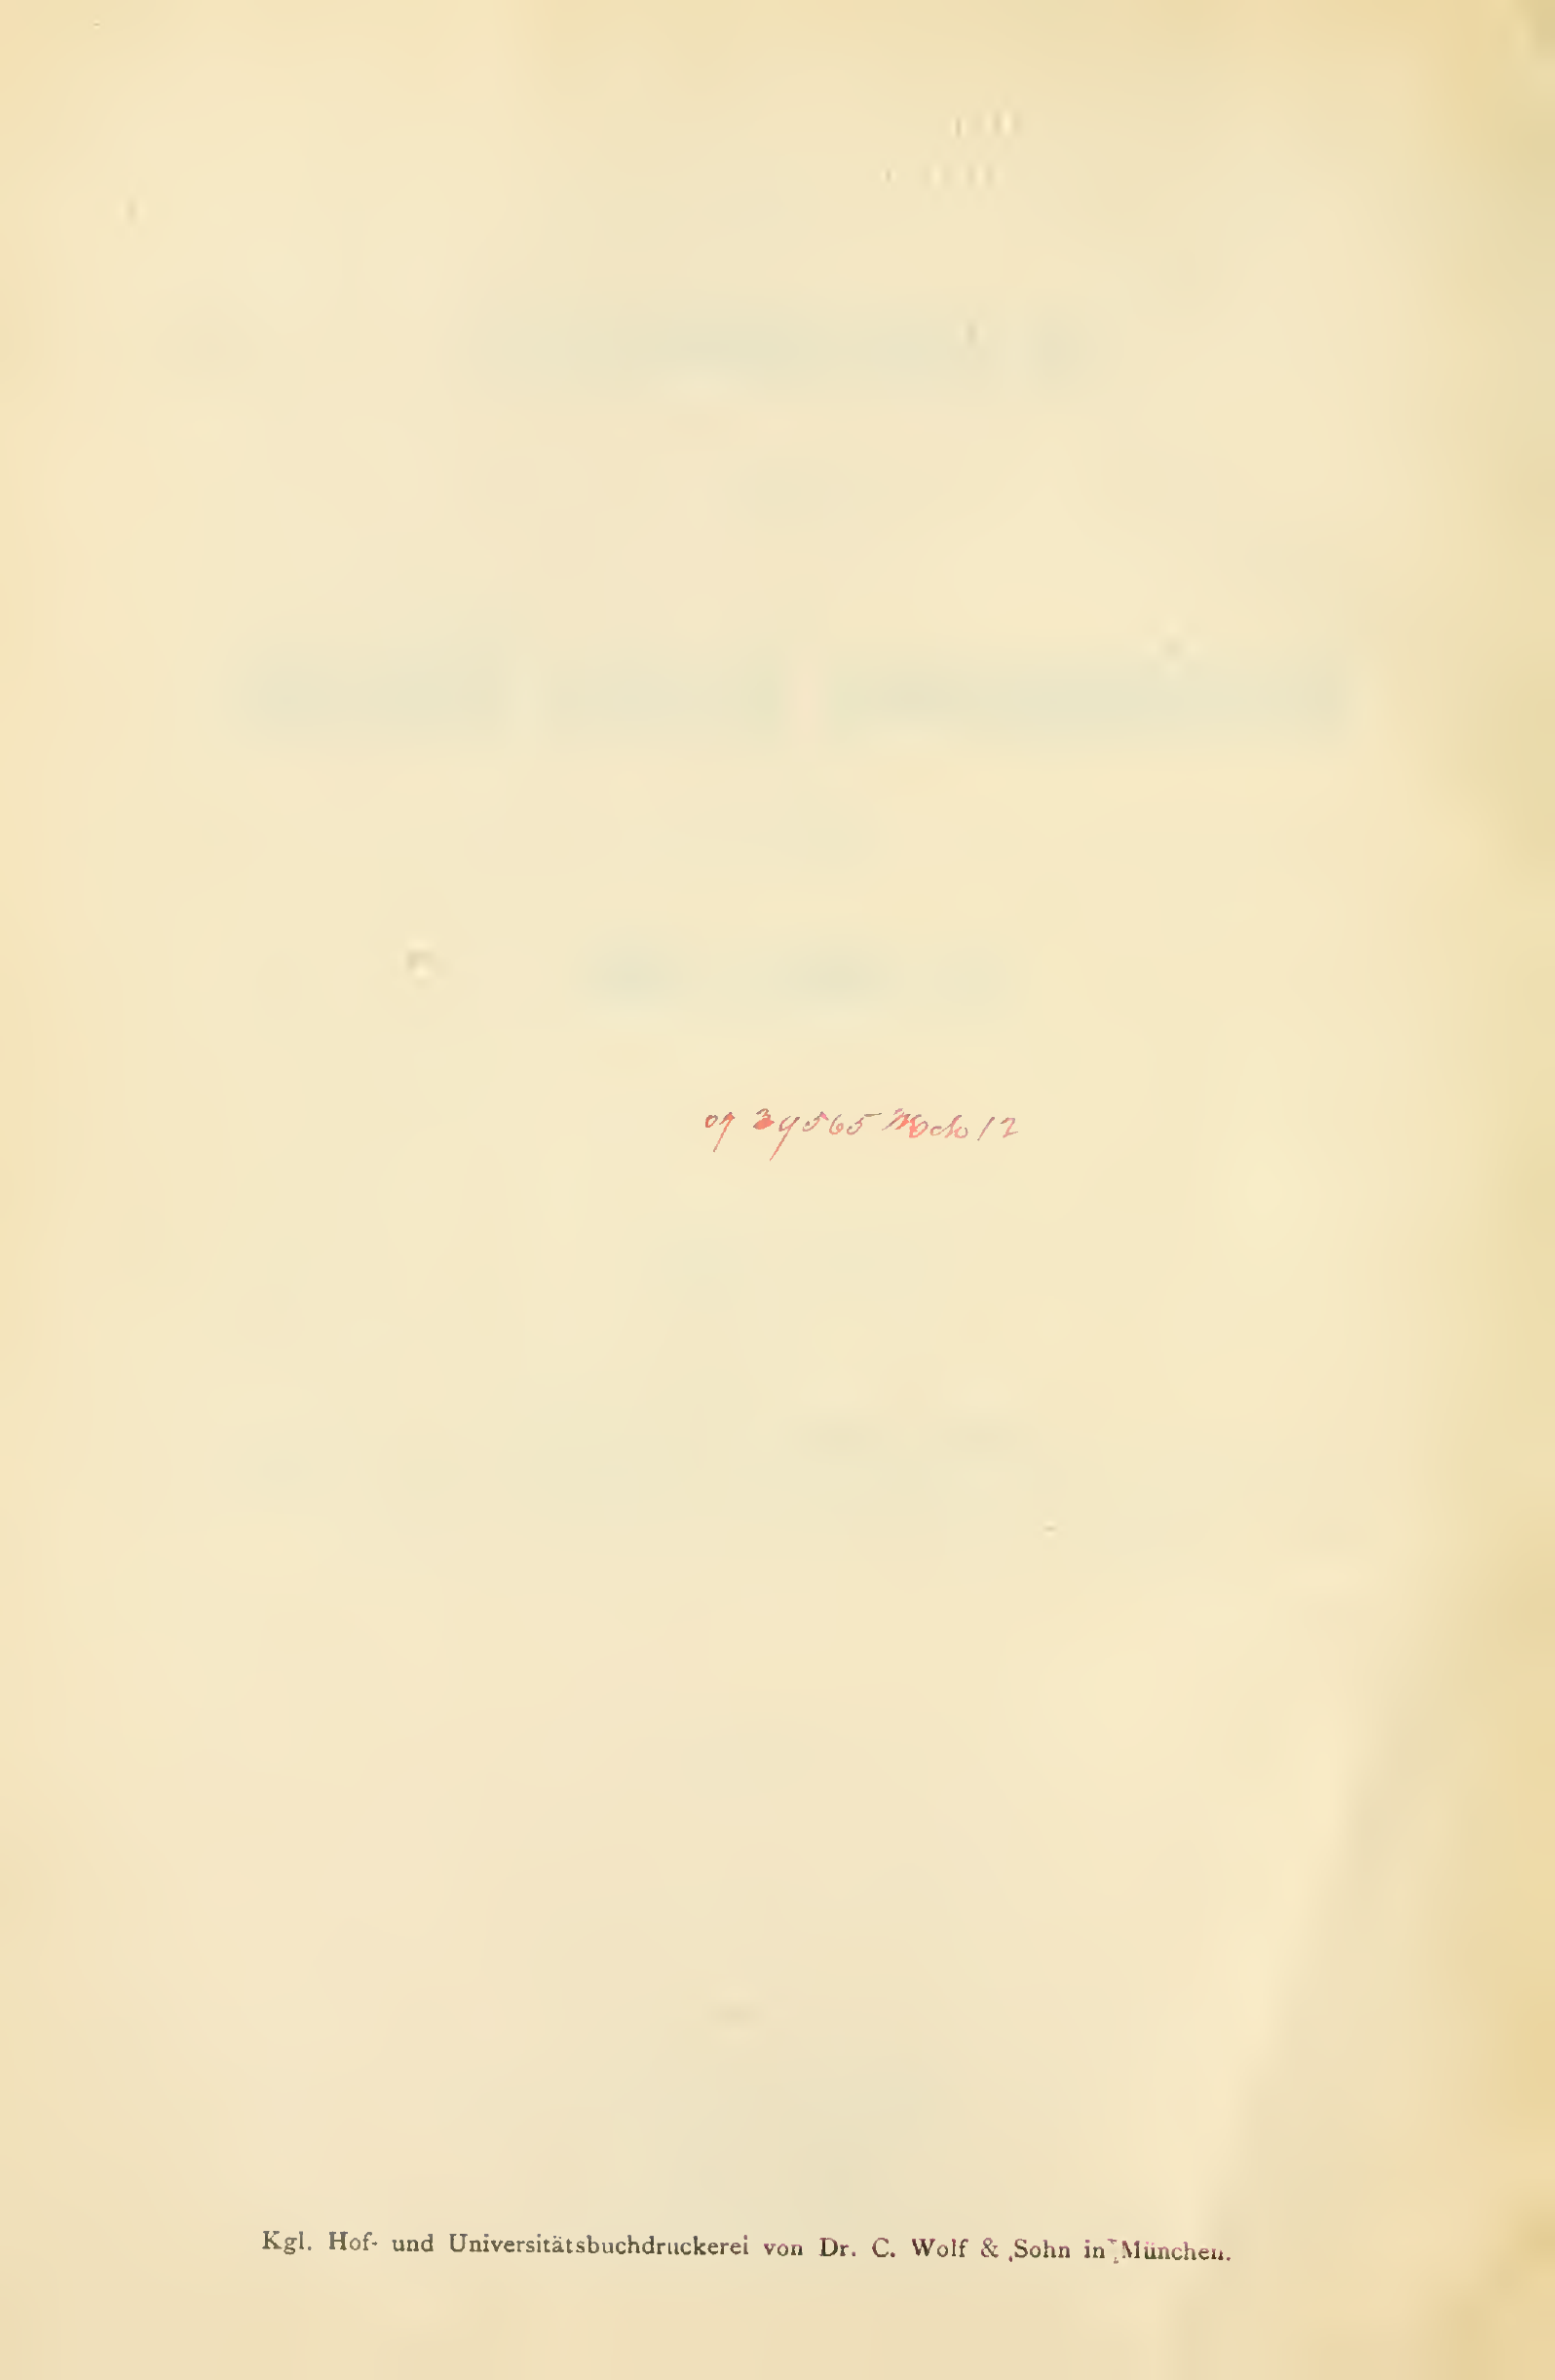 Kgl. Hof- und Universitätsbuchdruckerei von Dr. C. Wolf & Sohn in München.